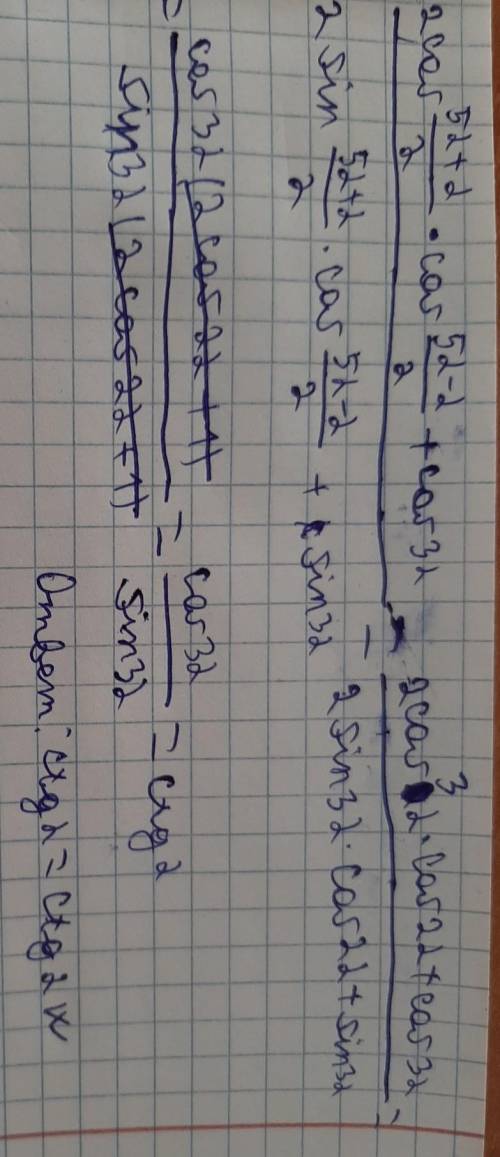 2cos (5α+α)/2 · cos (5α-α)/2 + cos3α / 2sin (5α+α)/2 · cos (5α-α)/2 + sin3α = 2cos3α · cos2α + cos3α / 2sin3α · cos2α + sin3α =
= cos3α(2cos2α+1) / sin3α(2cos2α+1) = cos3α / sin3α = ctgα
Ответ: ctgα = ctg